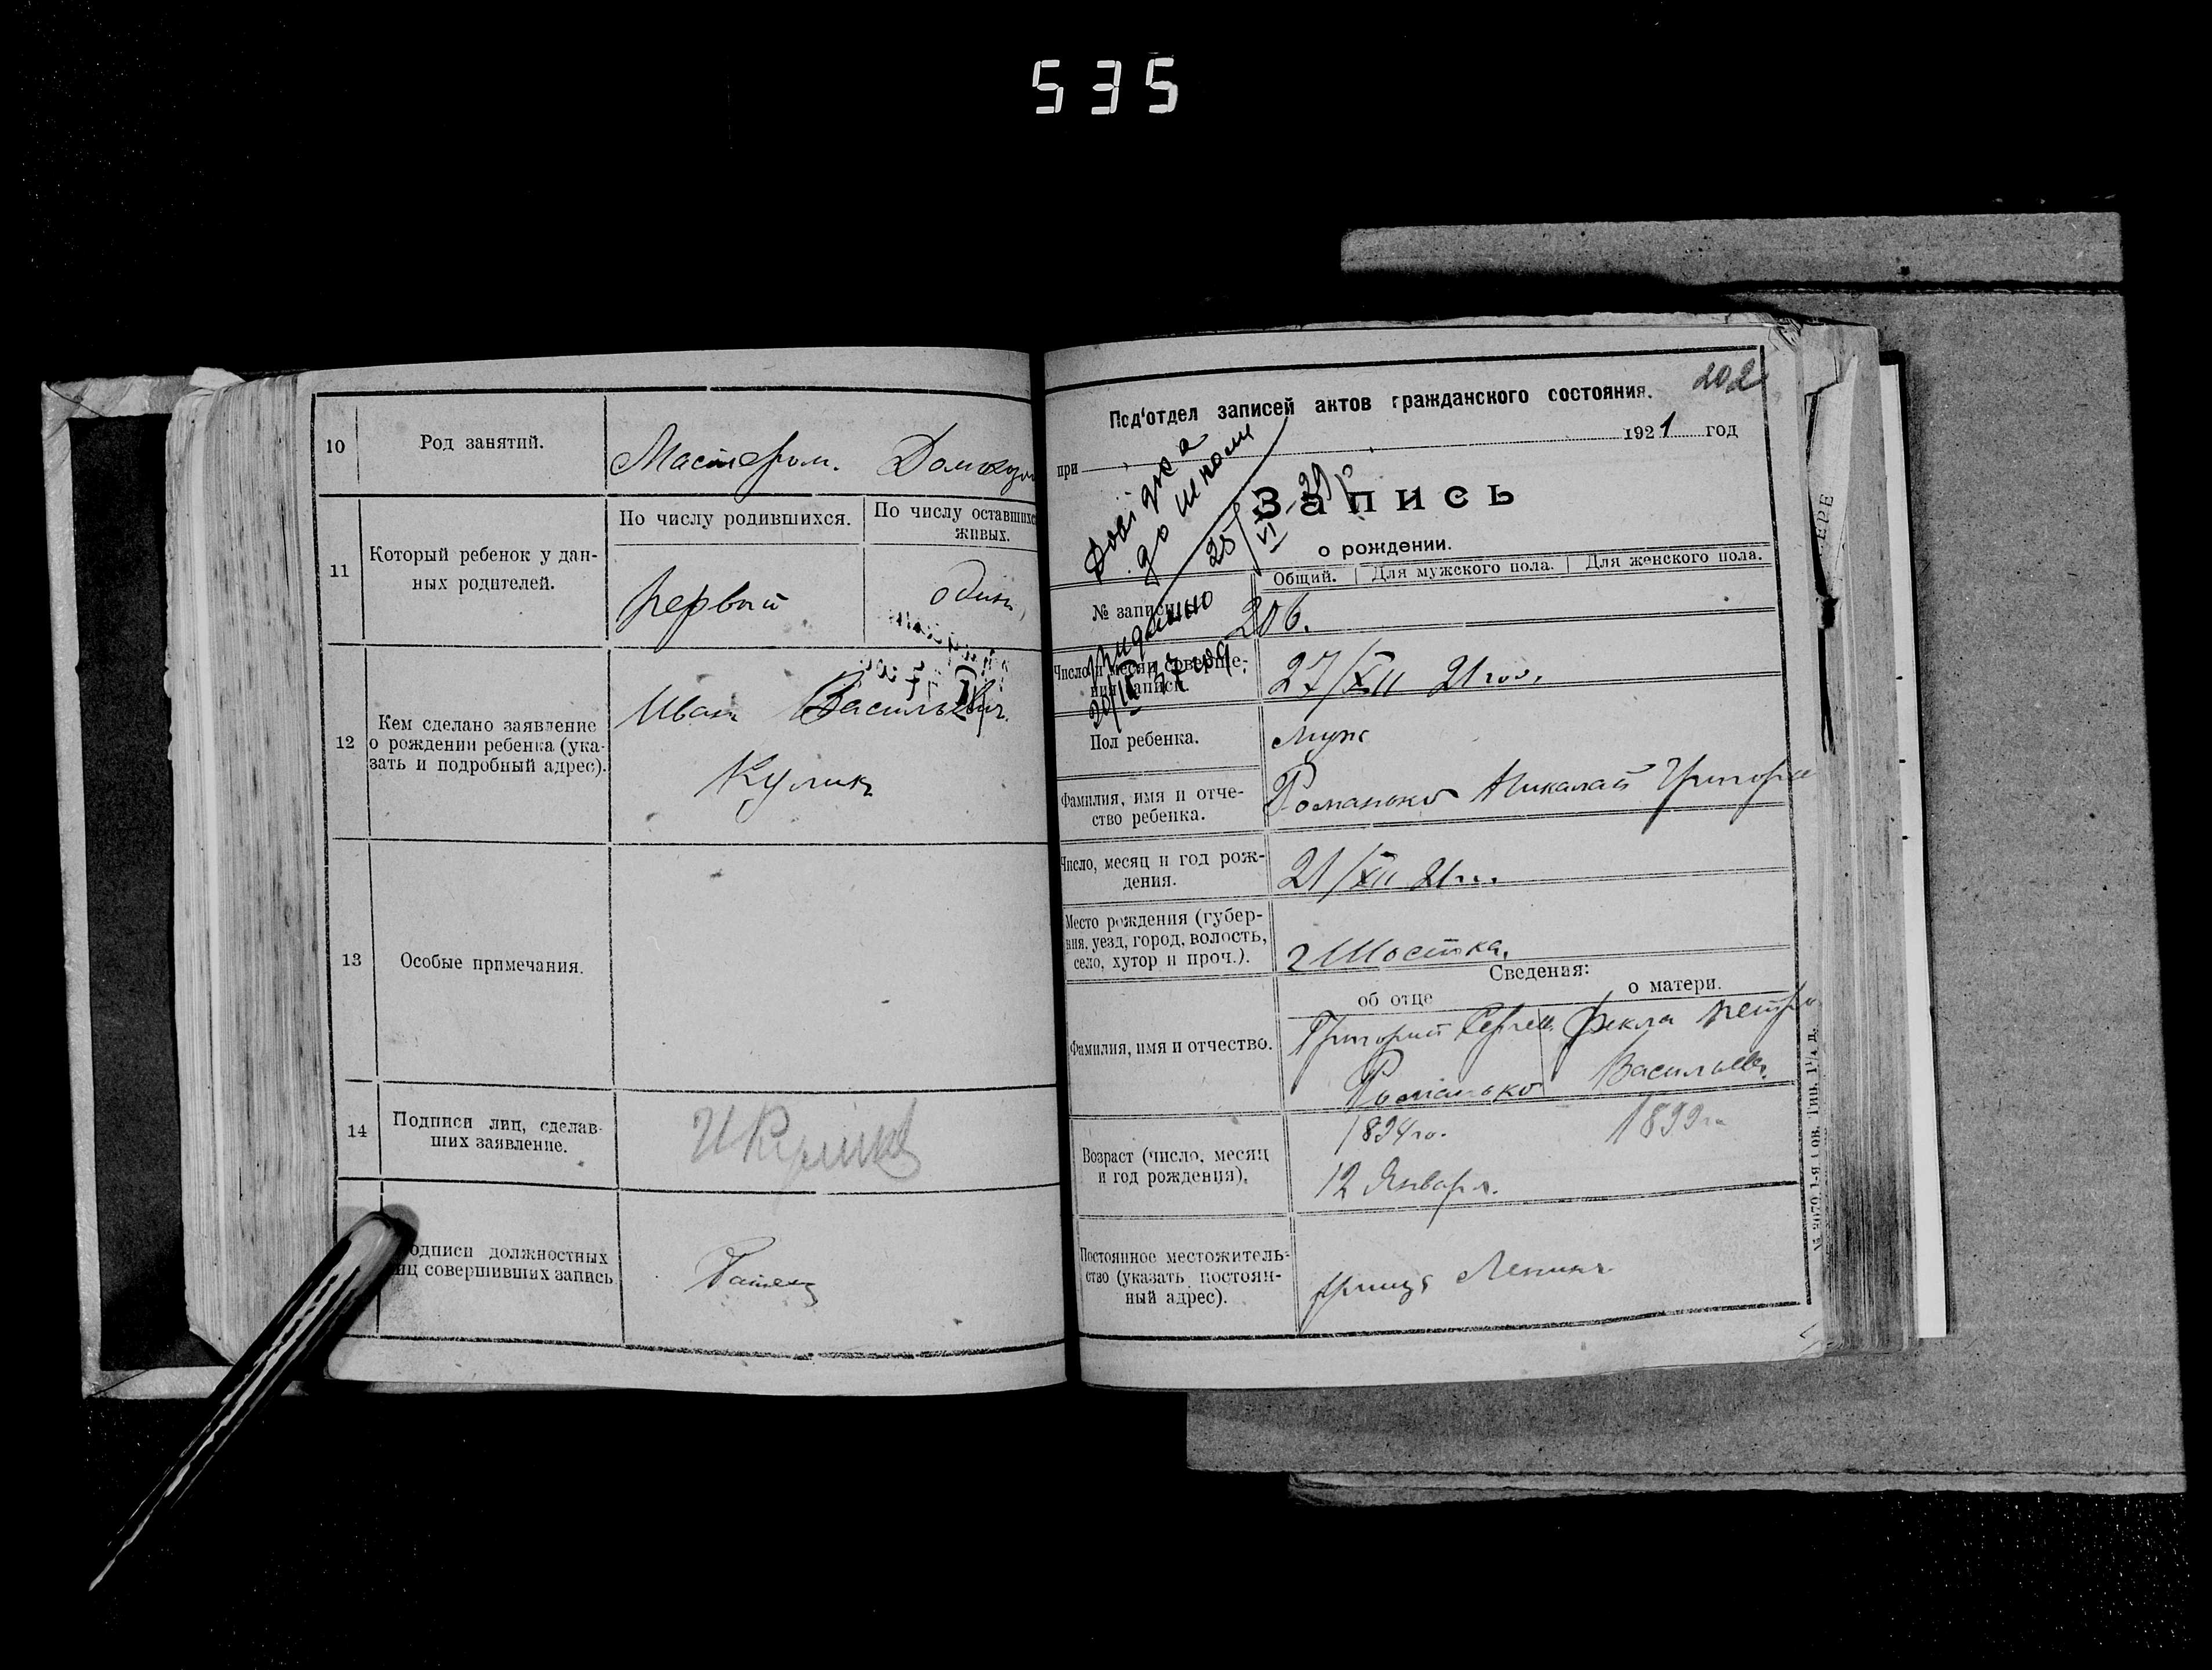 535
10
Род занятий.
Мастером.
11
Который ребенок у дан-
ных родителей.
По числу родившихся.
первый
По числу оставшихс
живых.
один
12
Кем сделано заявление
о рождении ребенка (ука-
зать и подробный адрес).
Иван Васильевич
Кулик
13
Особые примечания.
14
Подписи лиц, сделав-
ших заявление.
одписи должностных
иц совершивших запись
202
Под'отдел записей актов гражданского состояния.
при
1921 год
Довідка
до школи
25/VI 29
Запись
о рождении.
Общий. Для мужского пола. Для женского пола.
№ записи
206.
видано
Число и месяц соверше-
ния записи.
27/XII 21 год.
Пол ребенка.
муж
Фамилия, имя и отче-
ство ребенка.
Романько Николай Григорье
Число, месяц и год рож-
дения.
21/XII 21 г.
Место рождения (губер-
ния, уезд, город, волость,
село, хутор и проч.).
г Шостка.
Сведения:
об отце
о матери.
Фамилия, имя и отчество.
Григорий Сергеев
Романько
Фекла Петро
Васильев.
Возраст (число, месяц
и год рождения).
1894 го.
12 Января.
1899 го
Постоянное местожитель-
ство (указать постоян-
ный адрес).
улица Ленина